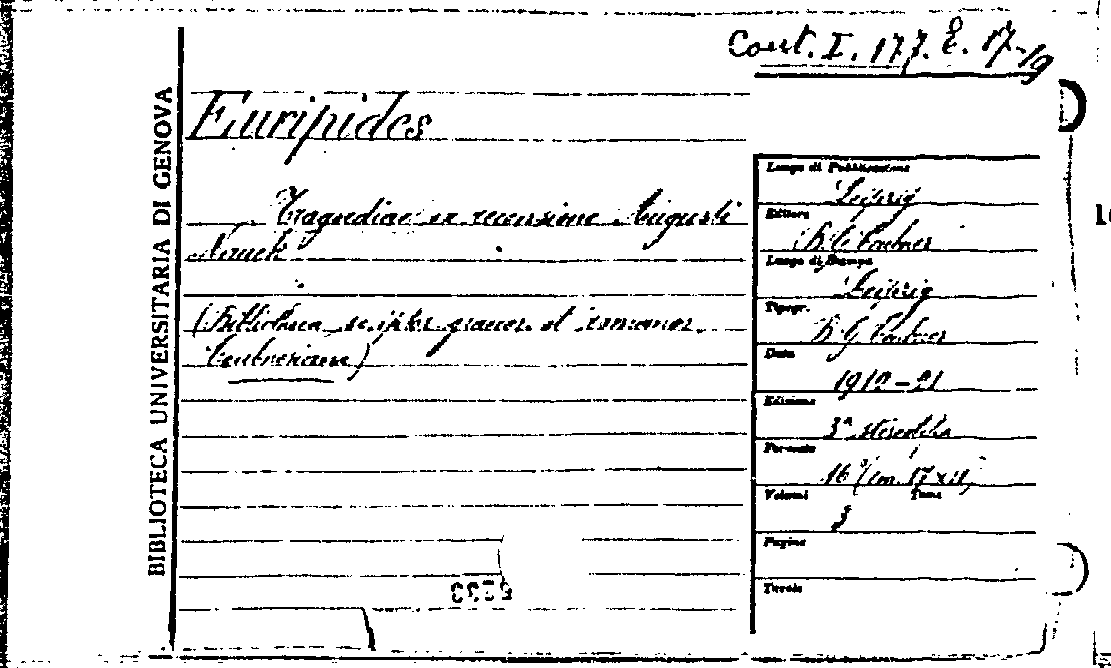 Cout. I. 177. E. 17-19
BIBLIOTECA UNIVERSITARIA DI GENOVA
Euripides
Tragoediae ex recensione Augusti
Nauck
(Bibliotheca script. graecor. et romanor.
Teubneriana)
Luogo di Pubblicazione
Leipzig
Editore
B. G. Teubner
Luogo di Stampa
Leipzig
Tipogr.
B. G. Teubner
Data
1912-21
Edizione
3ª
Formato
16° (cm. 17 x 11)
Volumi Tomi
3
Pagine
Tavole